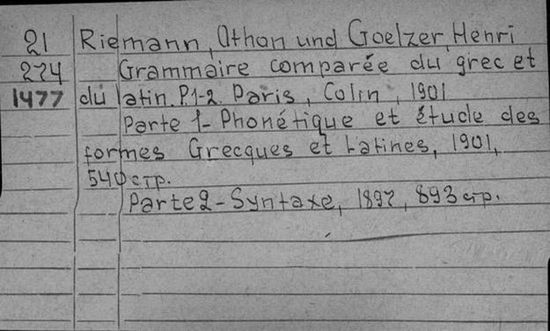 21 Riemann, Othon und Goelzer, Henri
274 Grammaire comparée du grec et
1477 du latin. P.1-2. Paris, Colin, 1901
Parte 1- Phonétique et étude des
formes Grecques et Latines, 1901,
540 стр.
Parte 2 - Syntaxe, 1897, 893 стр.